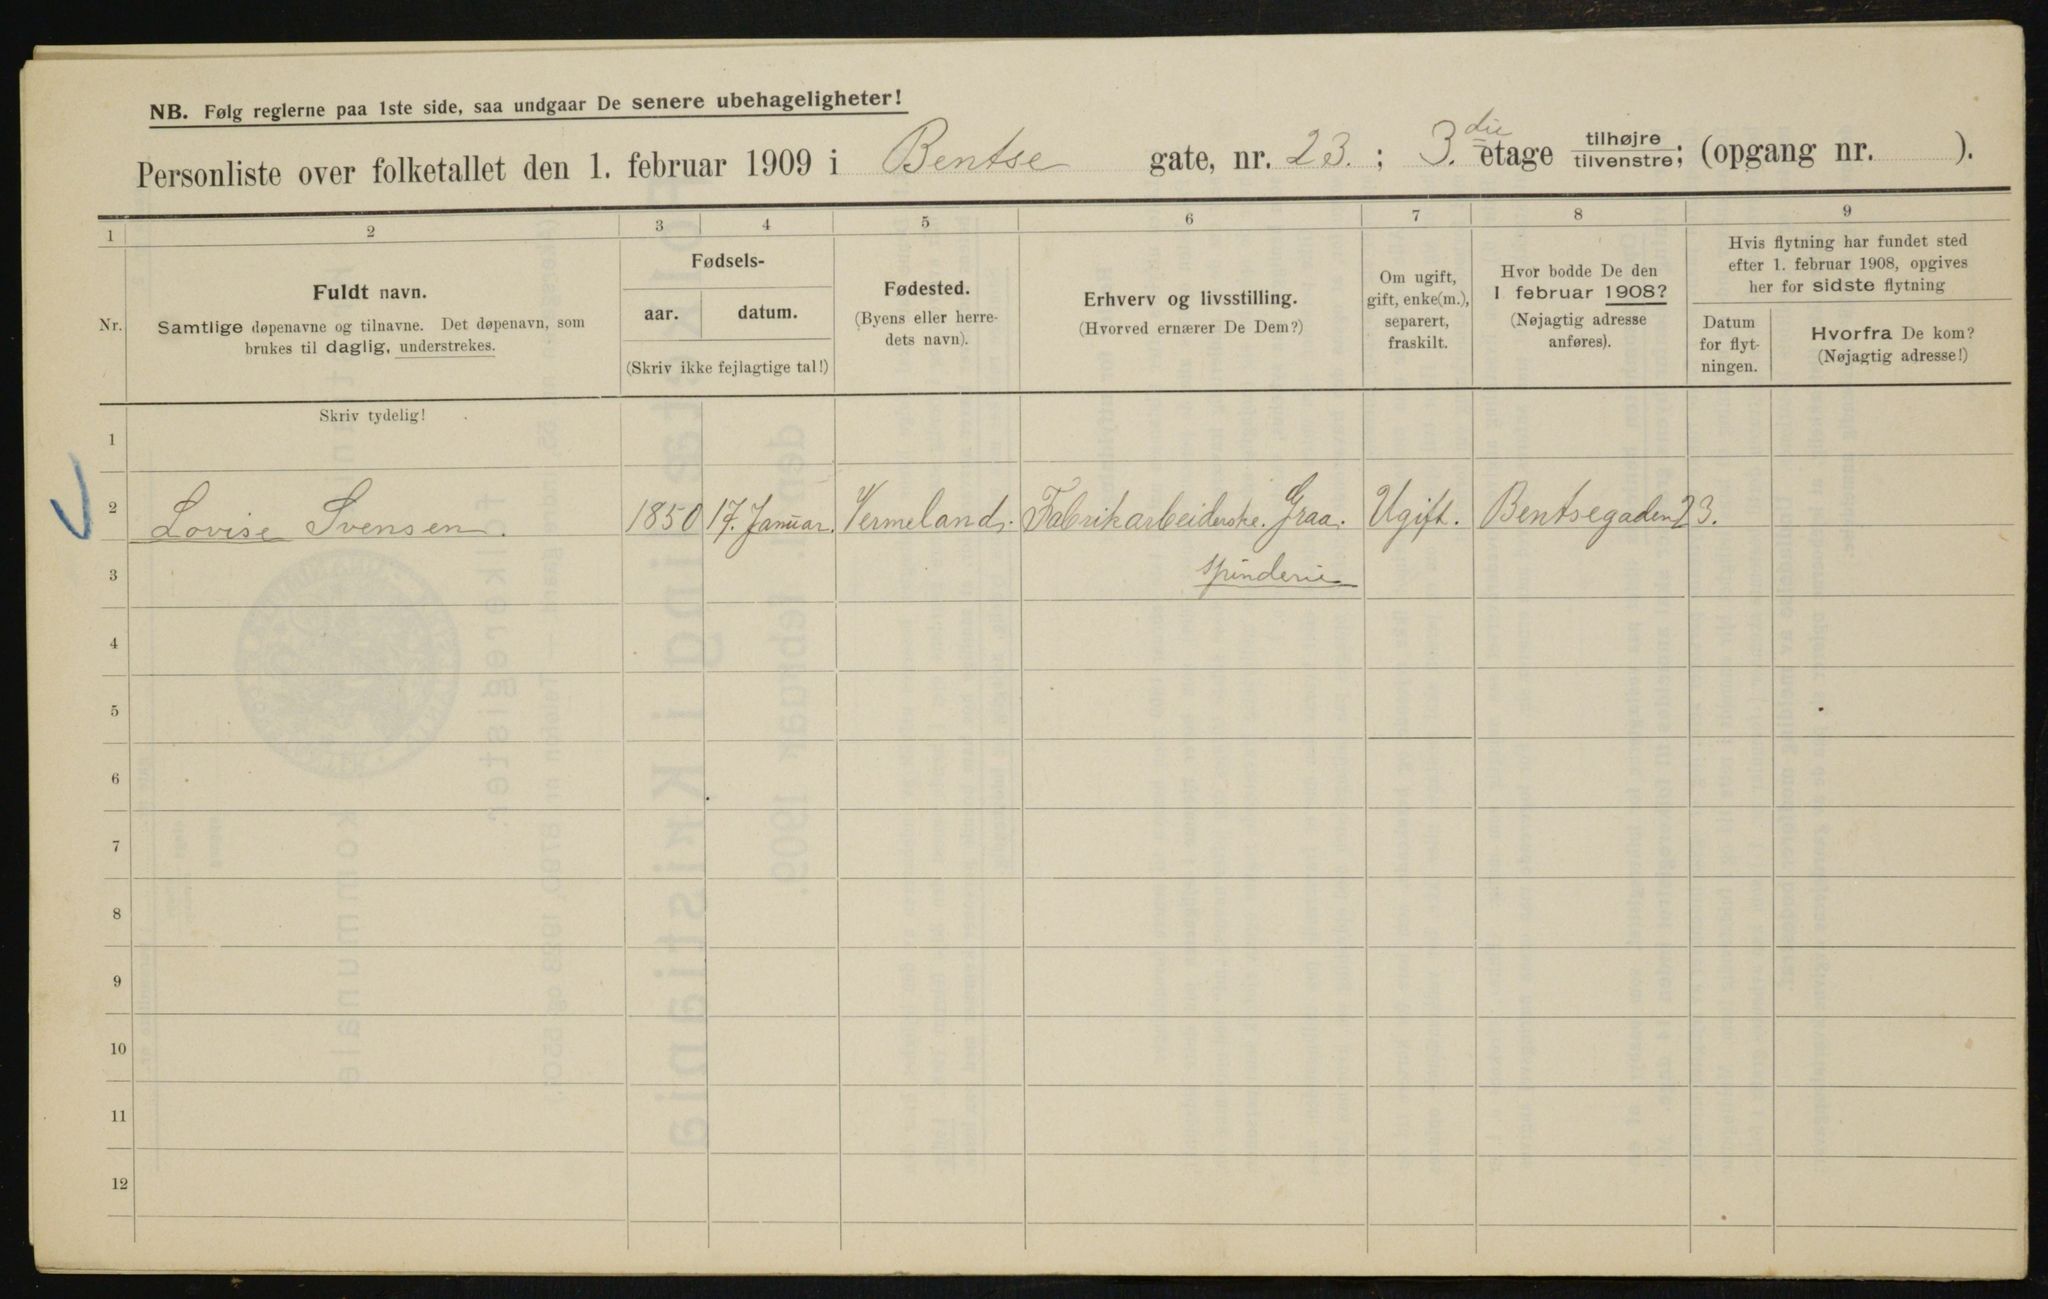 NB. Følg reglerne paa 1ste side, saa undgaar De senere ubehageligheter!
Personliste over folketallet den 1. februar 1909 i Bentse gate, nr. 23. ; 3.die etage tilhøjre tilvenstre; (opgang nr. ).
1 2 3 4 5 6 7 8 9
Nr.
Fuldt navn.
Samtlige døpenavne og tilnavne. Det døpenavn, som
brukes til daglig, understrekes.
Fødsels-
aar. datum.
(Skriv ikke fejlagtige tal!)
Fødested.
(Byens eller herre-
dets navn).
Erhverv og livsstilling.
(Hvorved ernærer De Dem?)
Om ugift,
gift, enke(m.),
separert,
fraskilt.
Hvor bodde De den
1 februar 1908?
(Nøjagtig adresse
anføres).
Hvis flytning har fundet sted
efter 1. februar 1908, opgives
her for sidste flytning
Datum
for flyt-
ningen.
Hvorfra De kom?
(Nøjagtig adresse!)
Skriv tydelig!
1
2 Lovise Svensen. 1850 17. Januar. Vermeland. Fabrikarbeiderske. Graa. Ugift. Bentsegaden 23.
3 spinderie
4
5
6
7
8
9
10
11
12